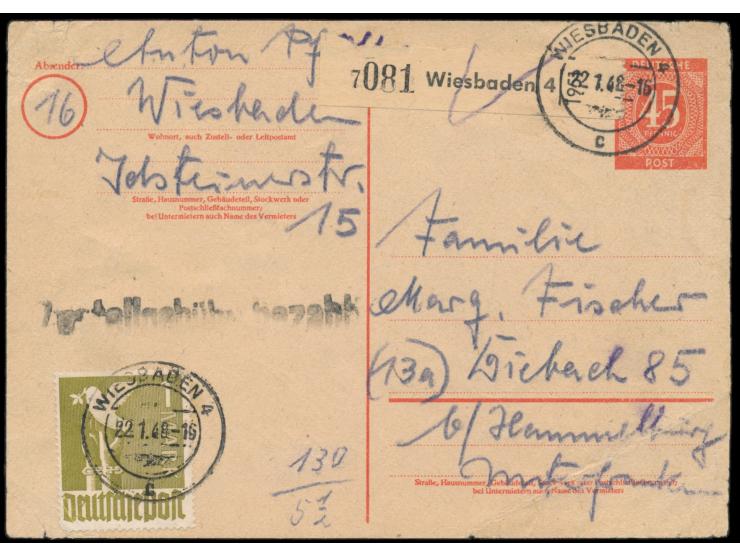 Absender:
Anton Pf
16
Wiesbaden
Wohnort, auch Zustell- oder Leitpostamt
Idsteinerstr.
Straße, Hausnummer, Gebäudeteil, Stockwerk oder
Postschließfachnummer;
bei Untermietern auch Name des Vermieters
15
7081 Wiesbaden 4
WIESBADEN 4
22 1.48-16
c
DEUTSCHE
45
PFENNIG
POST
Familie
Marg. Fischer
(13a) Diebach 85
b/ Hammelburg
Unterfranken
Straße, Hausnummer, Gebäudeteil,
bei Untermietern auch Name des Vermieters
Zustellgebühr bezahlt
WIESBADEN 4
22 1.48-16
Deutsche Post
130
5 1/2